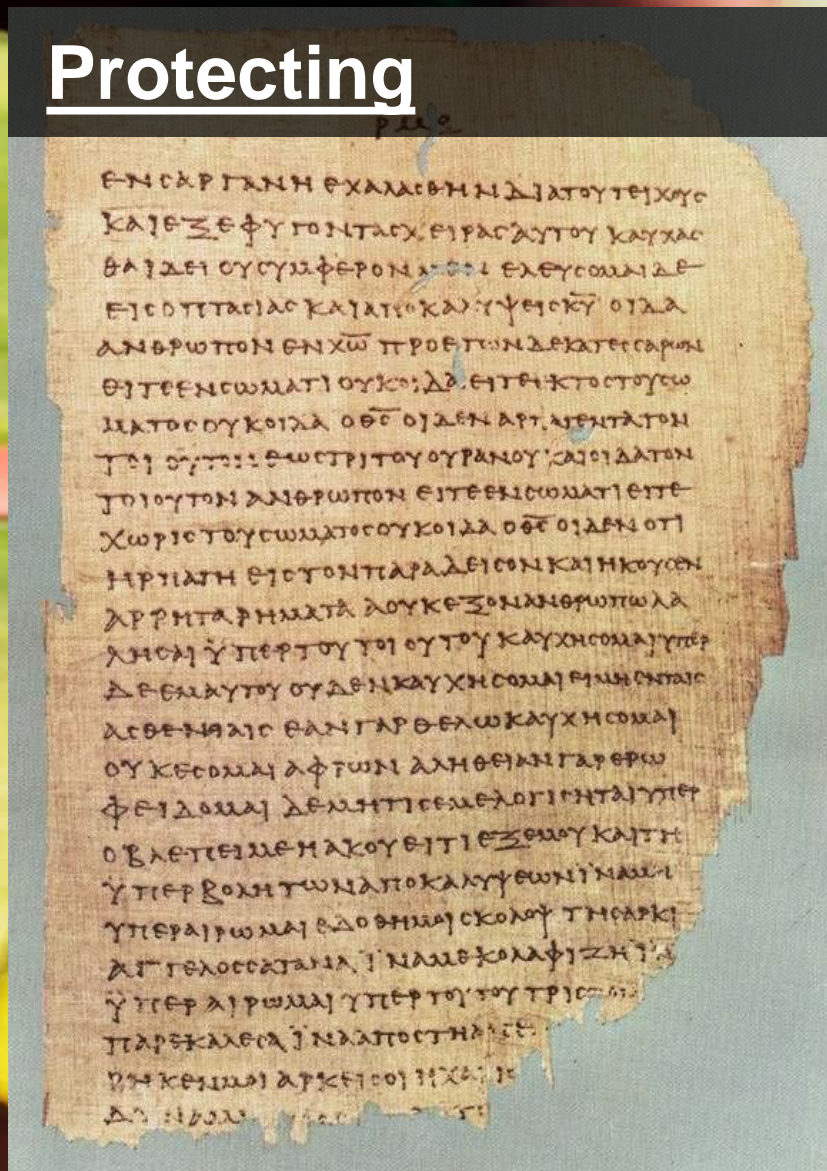 Protecting
ΕΝϹΑΡΓΑΝΗ ΕΧΑΛΑϹΘΗΝ ΔΙΑΤΟΥΤΕΙΧΟΥϹ
ΚΑΙΕΞΕΦΥΓΟΝΤΑϹΧΕΙΡΑϹΑΥΤΟΥ ΚΑΥΧΑϹ
ΘΑΙΔΕΙ ΟΥϹΥΜΦΕΡΟΝ ΕΛΕΥϹΟΜΑΙΔΕ
ΕΙϹΟΠΤΑϹΙΑϹ ΚΑΙΑΠΟΚΑΛΥΨΕΙϹΚ̅Υ̅ ΟΙΔΑ
ΑΝΘΡΩΠΟΝ ΕΝΧ̅Ω̅ ΠΡΟΕΤΩΝΔΕΚΑΤΕϹϹΑΡΩΝ
ΕΙΤΕΕΝϹΩΜΑΤΙ ΟΥΚΟΙΔΑ ΕΙΤΕΕΚΤΟϹΤΟΥϹΩ
ΜΑΤΟϹΟΥΚΟΙΔΑ ΟΘ̅Ϲ̅ ΟΙΔΕΝ ΑΡΠΑΓΕΝΤΑΤΟΝ
ΤΟΙΟΥΤΟΝ ΕΩϹΤΡΙΤΟΥΟΥΡΑΝΟΥ ΚΑΙΟΙΔΑΤΟΝ
ΤΟΙΟΥΤΟΝ ΑΝΘΡΩΠΟΝ ΕΙΤΕΕΝϹΩΜΑΤΙΕΙΤΕ
ΧΩΡΙϹΤΟΥϹΩΜΑΤΟϹΟΥΚΟΙΔΑ ΟΘ̅Ϲ̅ ΟΙΔΕΝ ΟΤΙ
ΗΡΠΑΓΗ ΕΙϹΤΟΝΠΑΡΑΔΕΙϹΟΝ ΚΑΙΗΚΟΥϹΕΝ
ΑΡΡΗΤΑΡΗΜΑΤΑ ΑΟΥΚΕΞΟΝΑΝΘΡΩΠΩΛΑ
ΛΗϹΑΙ ΫΠΕΡΤΟΥΤΟΙΟΥΤΟΥ ΚΑΥΧΗϹΟΜΑΙΥΠΕΡ
ΔΕΕΜΑΥΤΟΥ ΟΥΔΕΝΚΑΥΧΗϹΟΜΑΙ ΕΙΜΗΕΝΤΑΙϹ
ΑϹΘΕΝΕΙΑΙϹ ΕΑΝΓΑΡΘΕΛΩΚΑΥΧΗϹΟΜΑΙ
ΟΥΚΕϹΟΜΑΙ ΑΦΡΩΝ ΑΛΗΘΕΙΑΝΓΑΡΕΡΩ
ΦΕΙΔΟΜΑΙ ΔΕΜΗΤΙϹΕΜΕΛΟΓΙϹΗΤΑΙΥΠΕΡ
ΟΒΛΕΠΕΙΜΕΗΑΚΟΥΕΙΤΙΕΞΕΜΟΥ ΚΑΙΤΗ
ΫΠΕΡΒΟΛΗΤΩΝΑΠΟΚΑΛΥΨΕΩΝΪΝΑΜΗ
ΥΠΕΡΑΙΡΩΜΑΙ ΕΔΟΘΗΜΟΙϹΚΟΛΟΨ ΤΗϹΑΡΚΙ
ΑΓΓΕΛΟϹϹΑΤΑΝΑ ΪΝΑΜΕΚΟΛΑΦΙΖΗΪΝΑ
ΫΠΕΡΑΙΡΩΜΑΙ ΥΠΕΡΤΟΥΤΟΥ ΤΡΙϹ
ΠΑΡΕΚΑΛΕϹΑ ΪΝΑΑΠΟϹΤΗ
ΡΗΚΕΝΜΟΙ ΑΡΚΕΙϹΟΙ ΗΧΑ